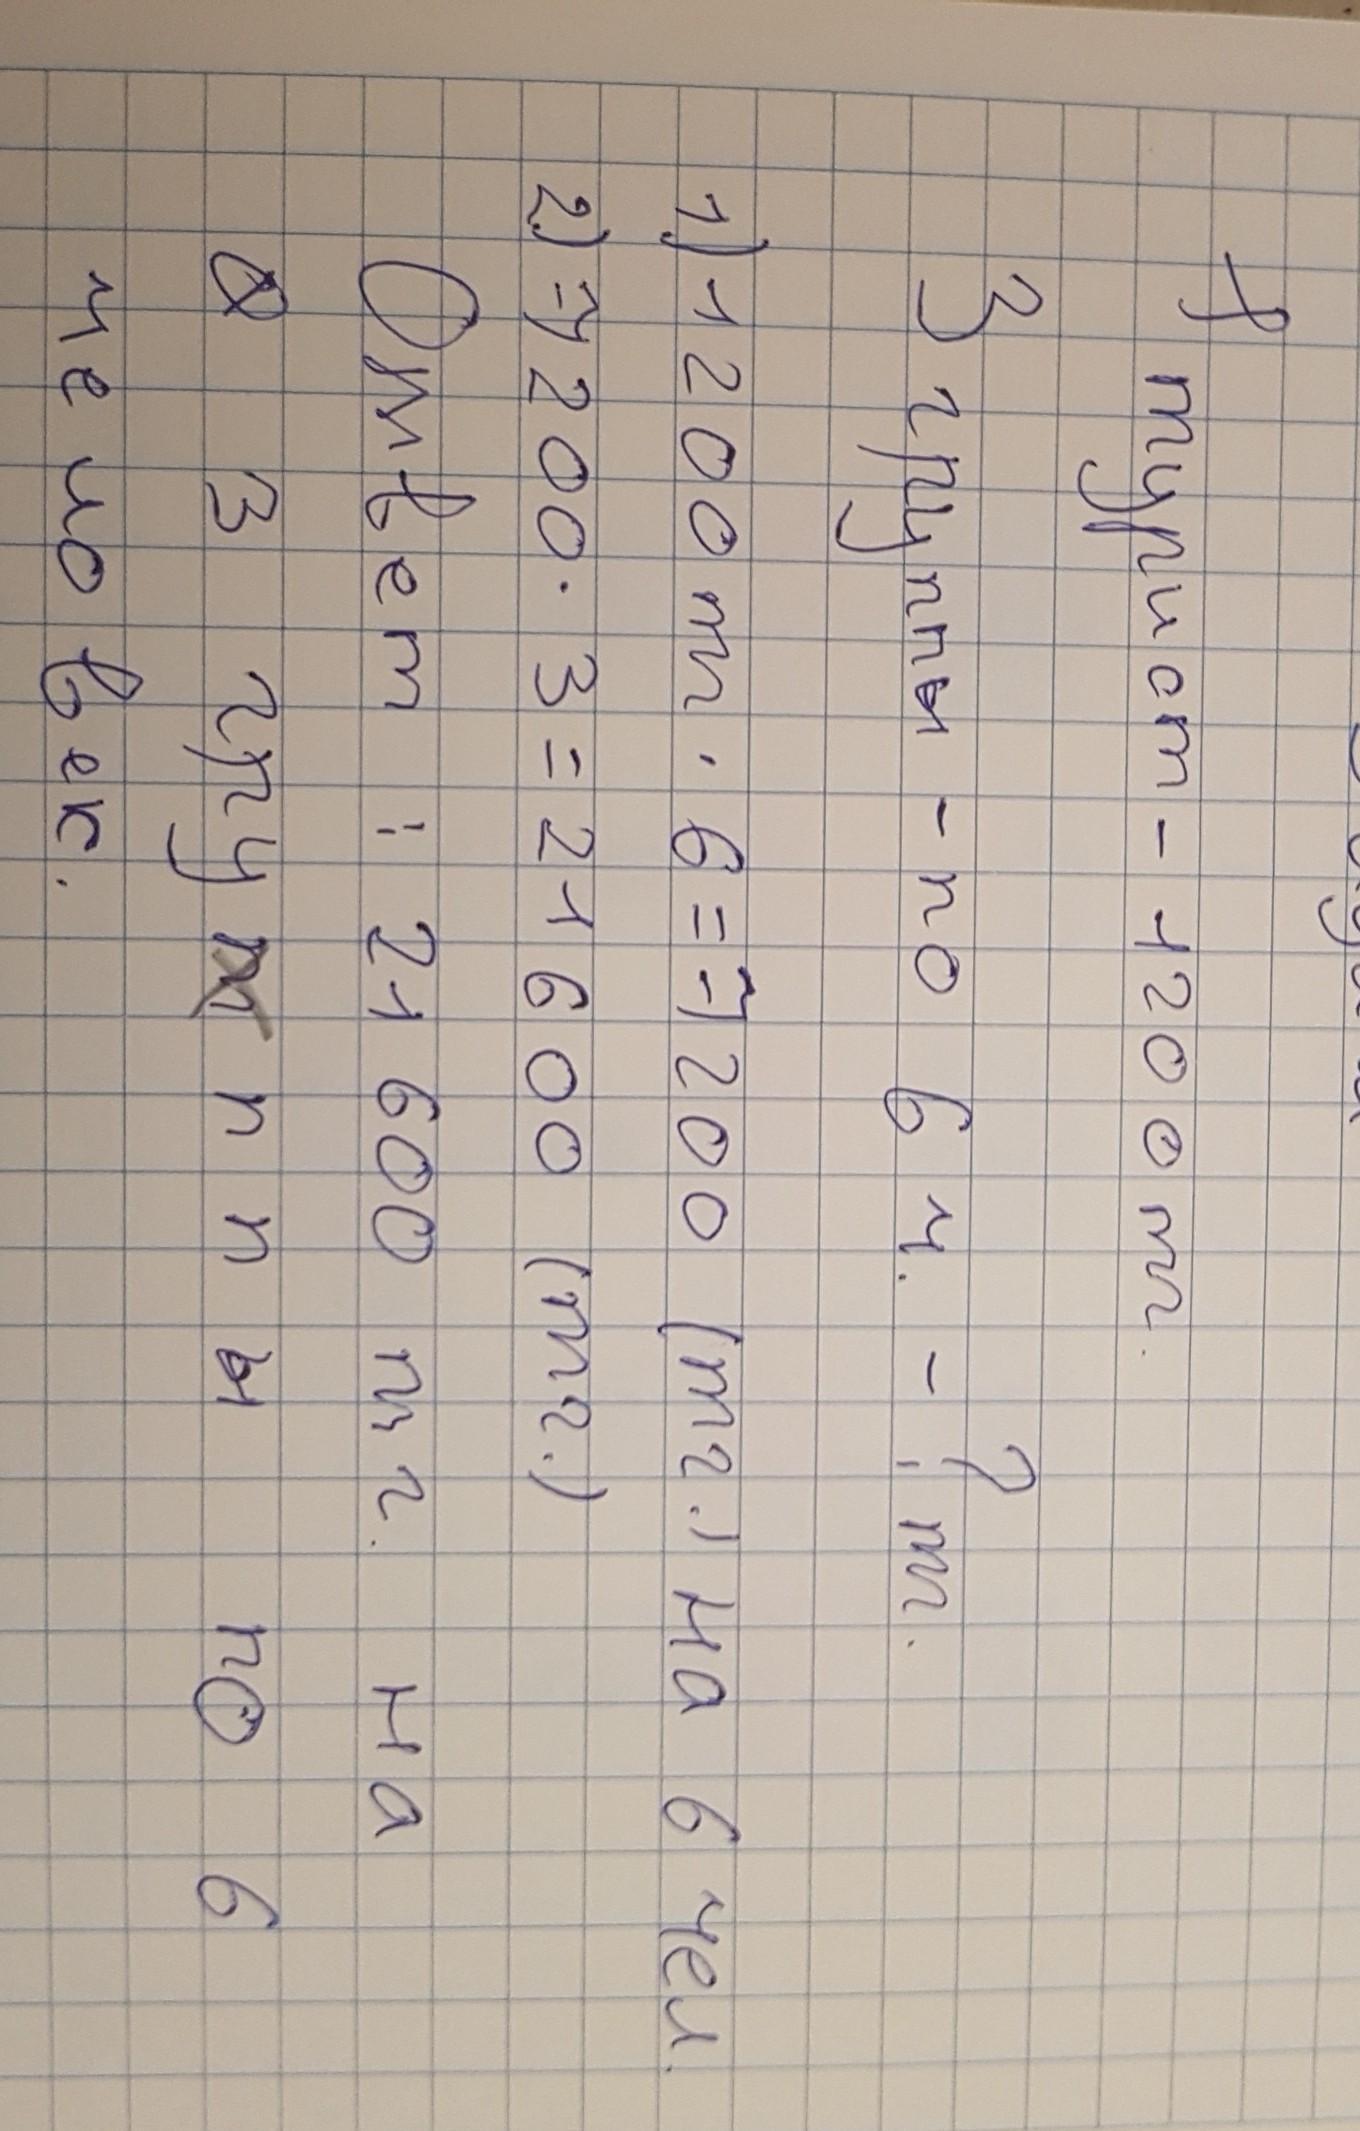 1 турист - 1200 тг.
3 группы - по 6 ч. - ? тг.
1) 1200 тг. · 6 = 7200 (тг.) на 6 чел.
2) 7200 · 3 = 21600 (тг.)
Ответ: 21600 тг. на
3 группы по 6
человек.